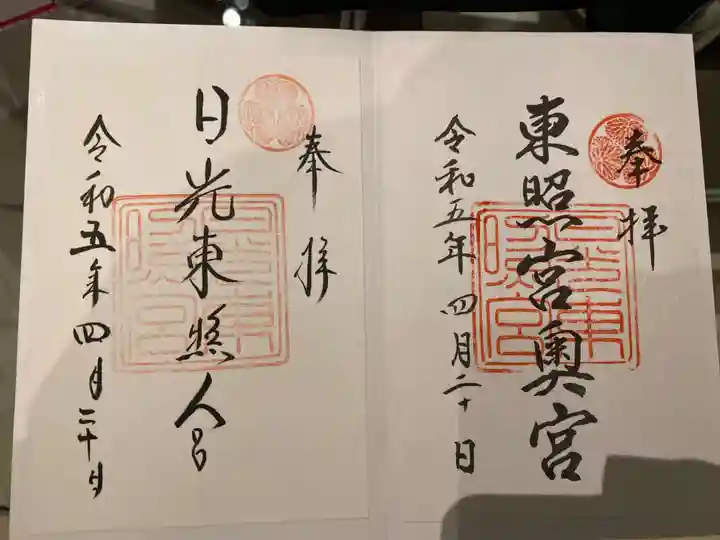 奉拝
東照宮奥宮
令和五年四月二十日
奉拝
日光東照宮
令和五年四月二十日